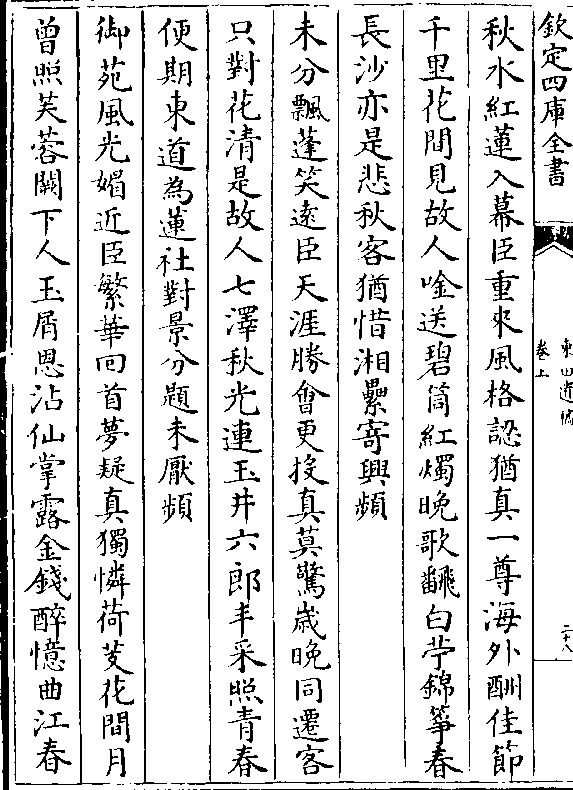 欽定四庫全書
東田遺稿
卷上
二十八
秋水紅蓮入幕臣重來風格認猶真一尊海外酬佳節
千里花間見故人唫送碧筒紅燭晚歌飜白苧錦箏春
長沙亦是悲秋客猶惜湘纍寄興頻
未分飄蓬笑遠臣天涯勝會更投真莫驚歲晚同遷客
只對花清是故人七澤秋光連玉井六郎丰采照青春
便期東道為蓮社對景分題未厭頻
御苑風光媚近臣繁華回首夢疑真獨憐荷芰花間月
曾照芙蓉闕下人玉屑恩沾仙掌露金錢醉憶曲江春